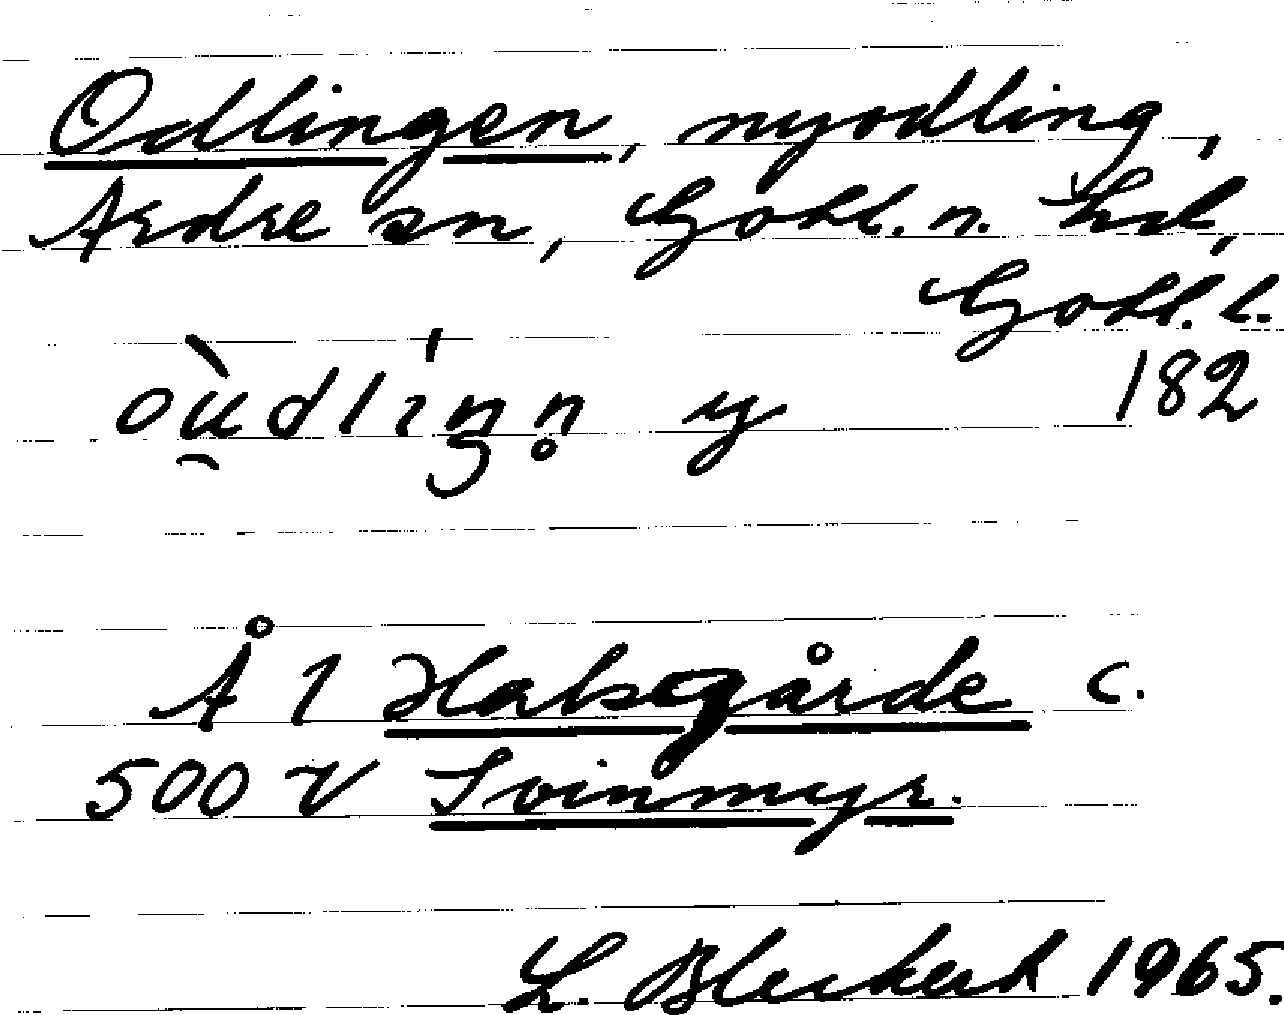 Odlingen, nyodling,
Ardre sn, Gotl. n. hd,
Gotl. l.
òu̯dlíŋn̥ y 182
Å 1 Halsgårde c.
500 V Svinmyr.
L. Bleckert 1965.